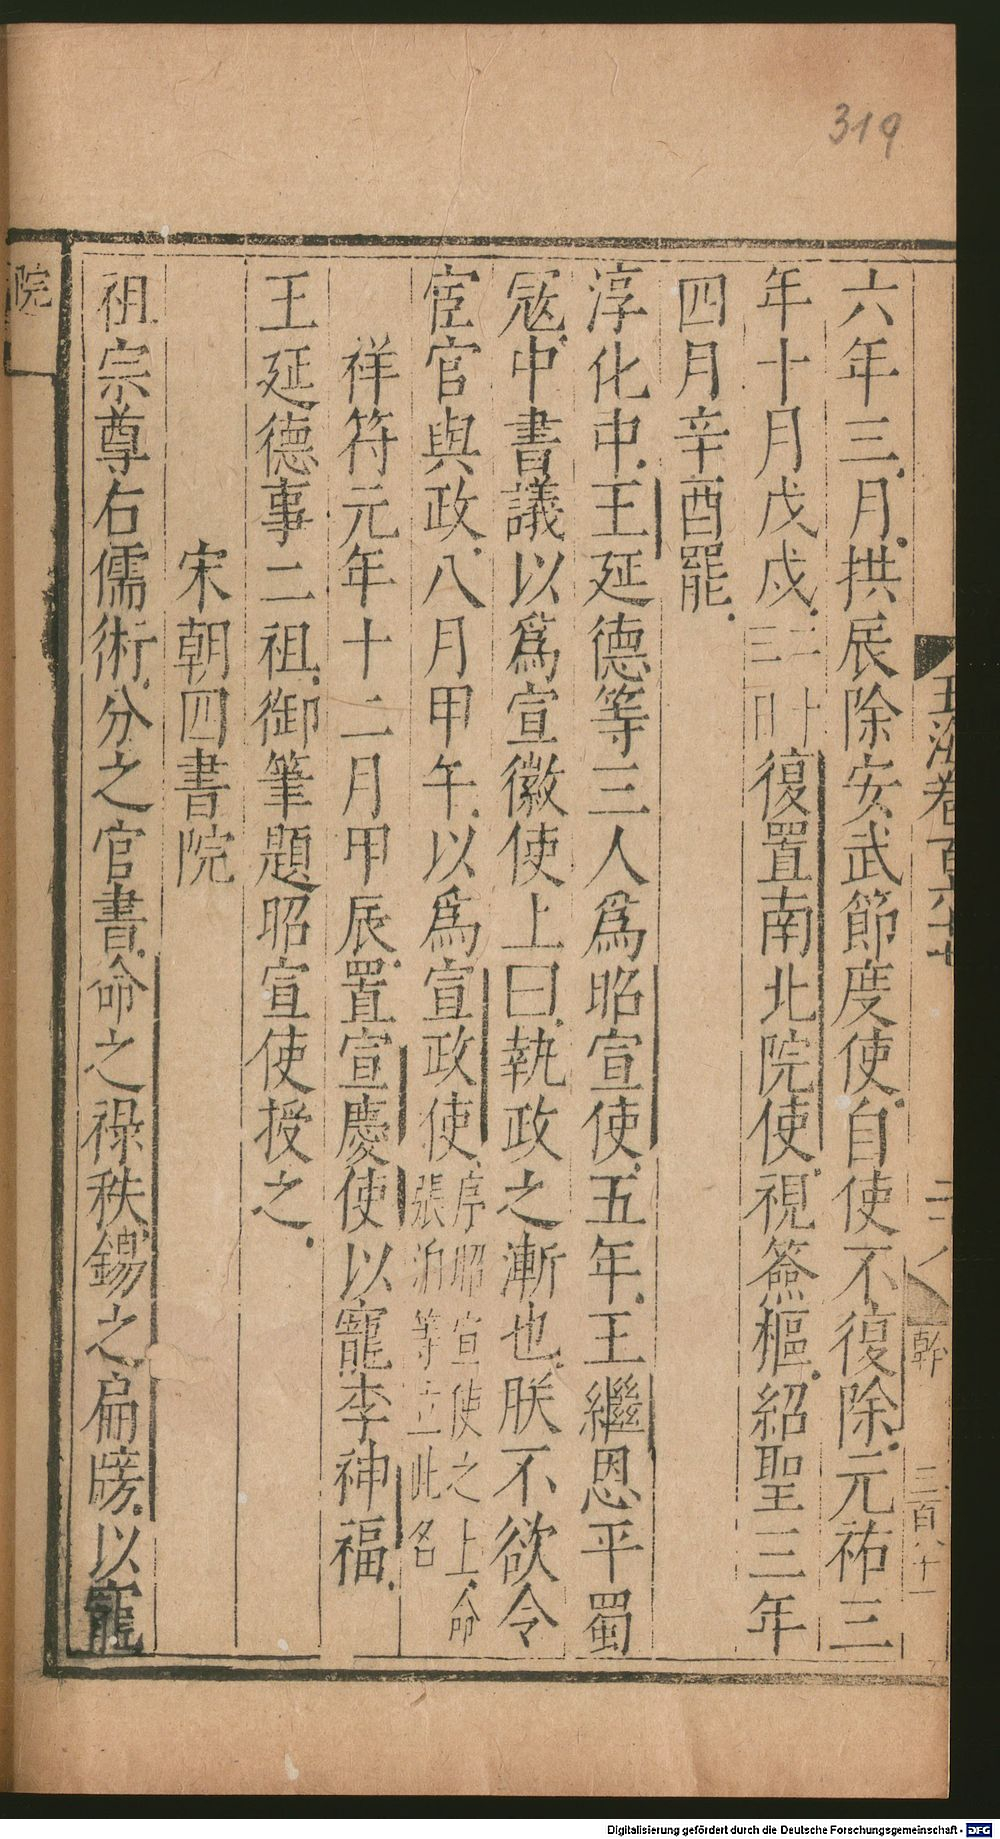 319
玉海卷百六十七
二十八
幹
三百八十一
六年三月拱展除安武節度使自使不復除元祐三
年十月戊戌二十三日復置南北院使視簽樞紹聖三年
四月辛酉罷
淳化中王延德等三人爲昭宣使五年王繼恩平蜀
寇中書議以爲宣徽使上曰執政之漸也朕不欲令
宦官與政八月甲午以爲宣政使序昭宣使之上命張洎等立此名
祥符元年十二月甲辰置宣慶使以寵李神福
王延德事二祖御筆題昭宣使授之
宋朝四書院
祖宗尊右儒術分之官書命之祿秩錫之扁牓以寵
院
Digitalisierung gefördert durch die Deutsche Forschungsgemeinschaft - DFG